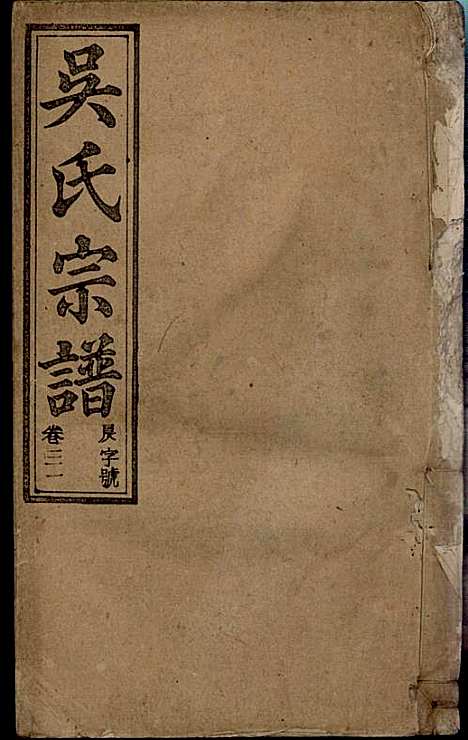 吳氏宗譜
字號
卷三二一